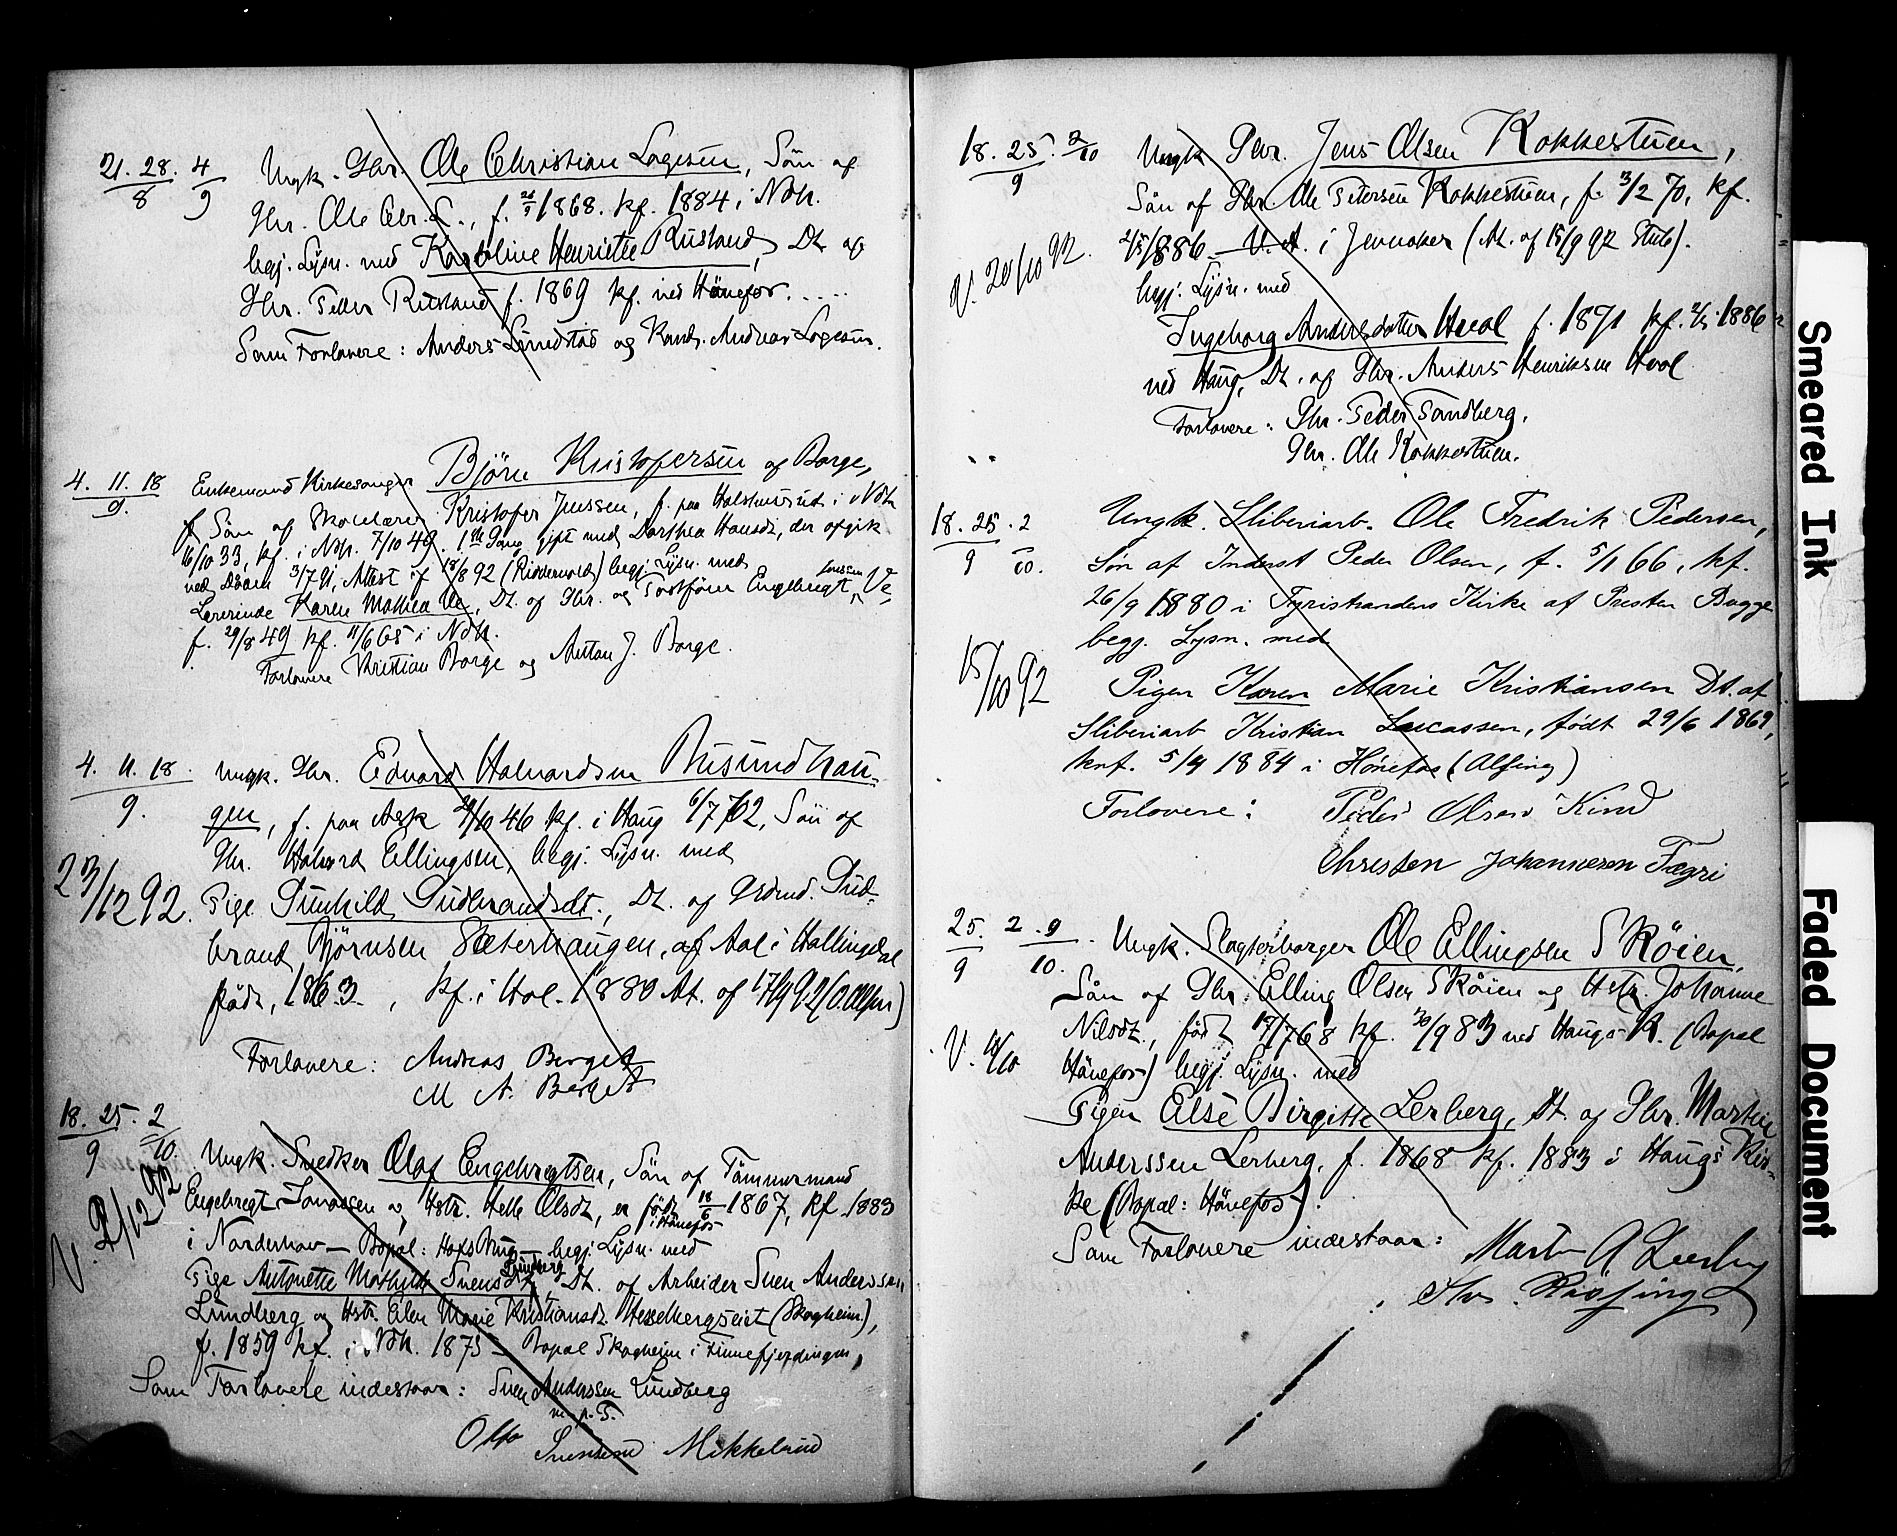 21. 28. 4
8 9
Ungk. Gbr. Ole Christian Logesen, Sön af
Gbr. Ole Chr. L., f. 1868. kf. 1884 i Ndh.
begj. Lysn. med Karoline Henriette Rusland, Dt. af
Gbr. Peder Rusland f. 1869 kf. ved Hönefos.....
Som Forlovere: Anders Lundstad og Kand. Andreas Logesen.
4. 11. 18
9.
Enkemand Kirkesanger Björn Kristofersen af Borge,
Sön af Skolelærer Kristofer Jenssen, f. paa i Ndh
16/10 33, kf. i Ndh. 7/10 49. 1ste Gang gift med Dorthea Hansdt, der afgik
ved Döden 3/7 91, Attest af 18/8 92 (Ridderwold) begj. Lysn. med
Lærerinde Karen Mathea Ve, Dt. af Gbr. og Engebregt Ve,
f. 29/8 49 kf. 11/6 65 i Ndh.
Forlovere Kristian Borge og Anton J. Borge.
4. 11. 18
9.
23/12 92.
Ungk. Gbr. Edvard Halvordsen Busundhau-
gen, f. paa Ask 10 46 kf. i Haug 6/7 62, Sön af
Gbr. Halvord Ellingsen, begj. Lysn. med
Pige Gunhild Gudbrandsdt., Dt. af Grdmd. Gud-
brand Björnsen Sæterhaugen, af Aal i Hallingdal
född, 1863, kf. i Hol. 1880 At. af 17/9 92
Forlovere: Andreas Berget
M A. Berget
18. 25. 2
9 10.
V. 2/12 92
Ungk. Snedker Olaf Engebregtsen, Sön af Tömmermand
Engebregt Jonassen og Hstr. Helle Olsdt, er född 18/6 1867, kf. 1883
i Hönefos
i Norderhov – Bopal: Hofsbrug – begj. Lysn. med
Lundberg
Pige Antonette Mathilde Svensdt, Dt. af Arbeider Sven Anderssen
Lundberg og Hstr. Elen Marie Kristiansdt. Hesselbergseiet (Skogheim),
f. 1859 kf. i Ndh. 1875 – Bopal Skogheim i
Som Forlovere indestaar: Sven Anderssen Lundberg
m. p. P.
Otto Svensen Mikkelrud
18. 25. 2
9 10
V. 20/10 92.
Ungk. Gbr. Jens Olsen Kokkestuen,
Sön af Gbr. Ole Petersen Kokkestuen, f. 3/2 70, kf.
1886 V. A. i Jevnaker (At. af 15/9 92 Stub).
begj. Lysn. med
Ingeborg Andersdatter Hvol f. 1871 kf. 1886
ved Haug, Dt. af Gbr. Anders Henriksen Hvol
Forlovere: Gbr. Peder Sandberg.
Gbr. Ole Kokkestuen.
18. 25. 2
9 10.
15/10 92
Ungk. Sliberiarb. Ole Fredrik Pedersen,
Søn af Inderst Peder Olsen, f. 5/1 66, kf.
26/9 1880 i Tyristrandens Kirke af Presten Bugge
begj. Lysn. med
Pigen Karen Marie Kristiansen Dt. af
Sliberiarb Kristian Lucassen, født 29/6 1869,
knf. 5/9 1884 i Hønefos (Alfing)
Forlovere: Peder Olsen Kind
Christen Johannesen Fægri
25. 2. 9
9 10.
V. 10
Ungk. Slagterborger Ole Ellingsen Sköien,
Sön af Gbr. Elling Olsen Sköien og Hstr. Johanne
Nilsdt., född 17/7 68 kf. 30/9 83 ved Haugs K. (Bopal
Hönefos) begj. Lysn. med
Pigen Else Birgitte Lerberg, Dt. af Gbr. Martin
Anderssen Lerberg, f. 1868 kf. 1883 i Haugs Kir-
ke (Bopal: Hönefos).
Som Forlovere indestaar: Martin A Leerberg
Smeared Ink
Faded Document